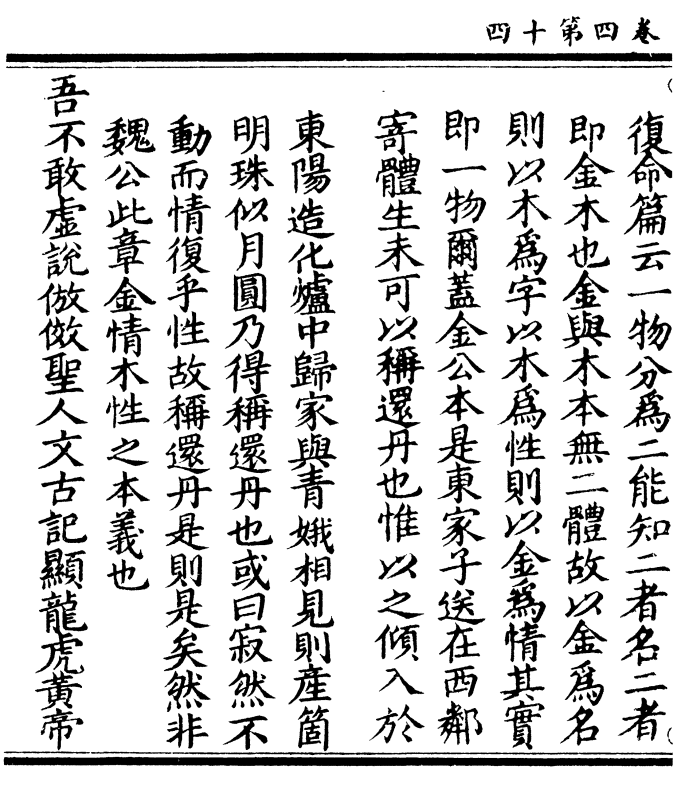 卷四第十四
復命篇云一物分爲二能知二者名二者
即金木也金與木本無二體故以金爲名
則以木爲字以木爲性則以金爲情其實
即一物爾蓋金公本是東家子送在西鄰
寄體生未可以稱還丹也惟以之傾入於
東陽造化爐中歸家與青娥相見則產箇
明珠似月圓乃得稱還丹也或曰寂然不
動而情復乎性故稱還丹是則是矣然非
魏公此章金情木性之本義也
吾不敢虛說倣傚聖人文古記顯龍虎黃帝